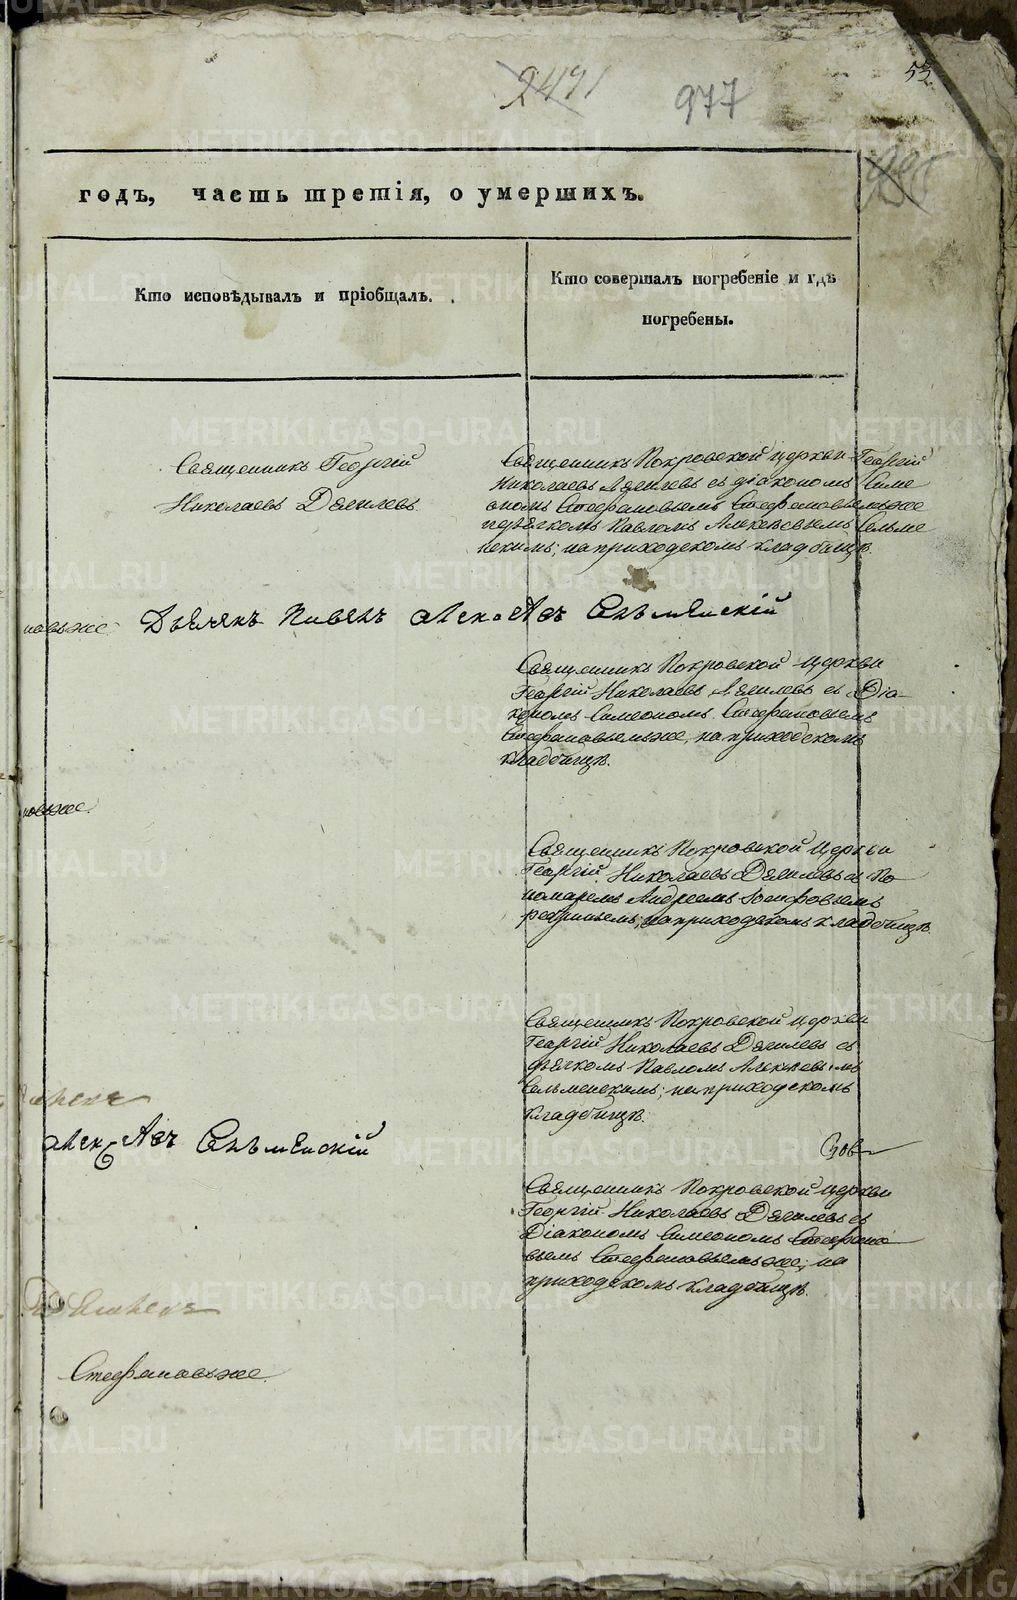 2491
977
годъ, часть третія, о умершихъ.
Кто исповѣдывалъ и пріобщалъ.
Кто совершалъ погребеніе и гдѣ
погребены.
Священникъ Георгій
Николаевъ Дягилевъ.
Священникъ Покровской церкви Георгій
Николаевъ Дягилевъ съ діакономъ Симе
ономъ Стефановымъ Стефановымъ же
и дьячкомъ Павломъ Алексѣевымъ Сельме
нскимъ; на приходскомъ кладбищѣ.
новъ же. Дьячекъ Павелъ Алексѣевъ Сельменскій
Священникъ Покровской церкви
Георгій Николаевъ Дягилевъ съ Діа-
кономъ Симеономъ Стефановымъ
Стефановымъ же, на приходскомъ
кладбищѣ.
новъ же.
Священникъ Покровской церкви
Георгій Николаевъ Дягилевъ съ По
номаремъ Андреемъ Іосифовымъ
на приходскомъ кладбищѣ.
Священникъ Покровской церкви
Георгій Николаевъ Дягилевъ съ
дьячкомъ Павломъ Алексѣевымъ
Сельменскимъ; на приходскомъ
кладбищѣ.
Алексѣевъ Сельменскій
Священникъ Покровской церкви
Георгій Николаевъ Дягилевъ съ
Діакономъ Симеономъ Стефано
вымъ Стефановымъ же; на
приходскомъ кладбищѣ.
Стефановъ же.
METRIKI.GASO-URAL.RU